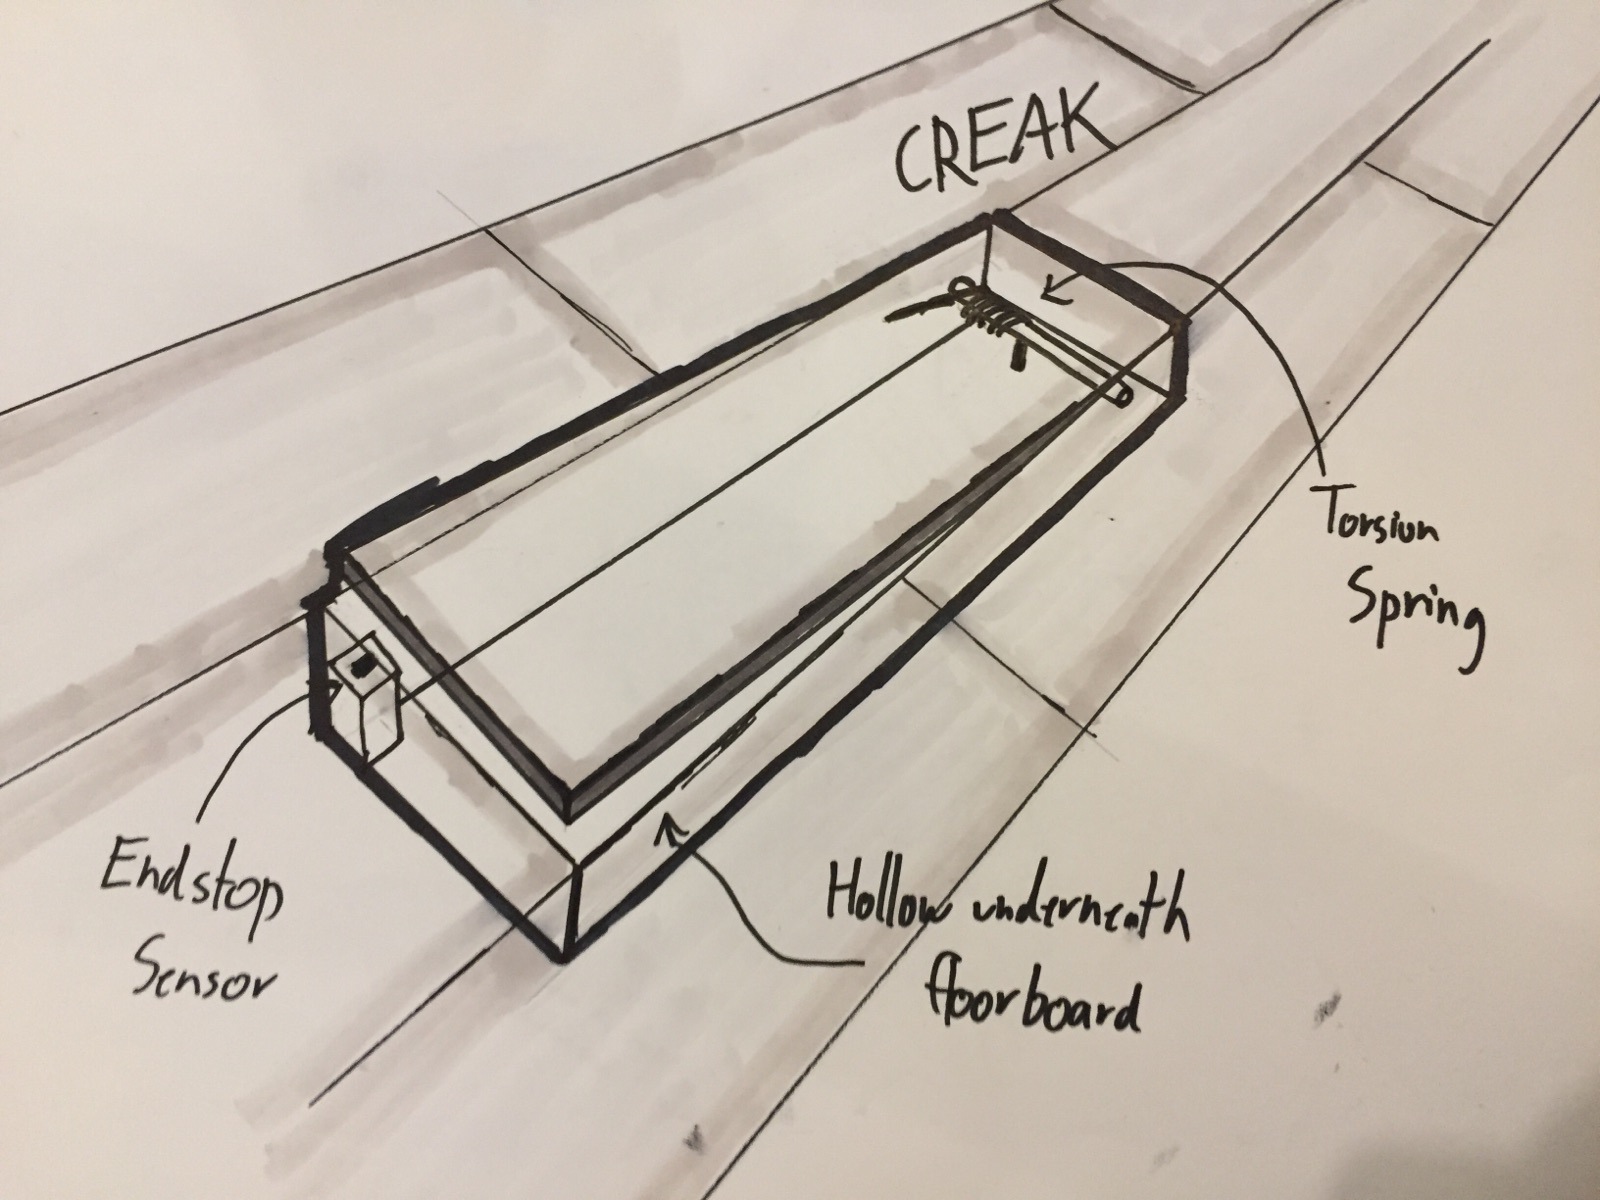 CREAK
Torsion
Spring
Endstop
Sensor
Hollow underneath
floorboard